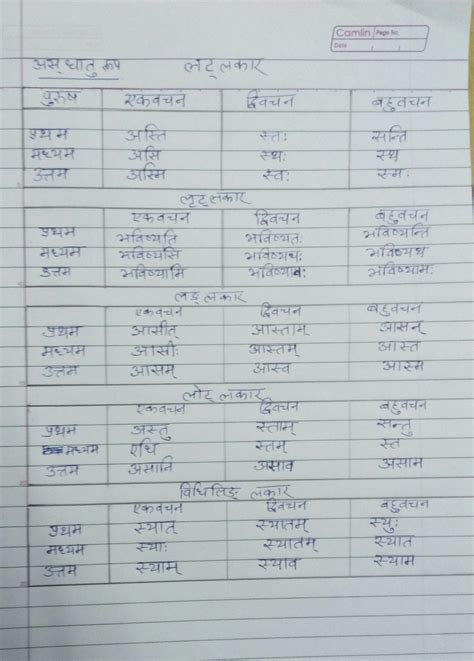 Camlin Page No.
Date
अस् धातु रूप लट् लकार
पुरुष एकवचन द्विवचन बहुवचन
प्रथम अस्ति स्तः सन्ति
मध्यम असि स्थः स्थ
उत्तम अस्मि स्वः स्मः
लृट् लकार
एकवचन द्विवचन बहुवचन
प्रथम भविष्यति भविष्यतः भविष्यन्ति
मध्यम भविष्यसि भविष्यथः भविष्यथ
उत्तम भविष्यामि भविष्यावः भविष्यामः
लङ् लकार
एकवचन द्विवचन बहुवचन
प्रथम आसीत् आस्ताम् आसन्
मध्यम आसीः आस्तम् आस्त
उत्तम आसम् आस्व आस्म
लोट् लकार
एकवचन द्विवचन बहुवचन
प्रथम अस्तु स्ताम् सन्तु
मध्यम एधि स्तम् स्त
उत्तम असानि असाव असाम
विधिलिङ् लकार
एकवचन द्विवचन बहुवचन
प्रथम स्यात् स्यातम् स्युः
मध्यम स्याः स्यातम् स्यात
उत्तम स्याम् स्याव स्याम